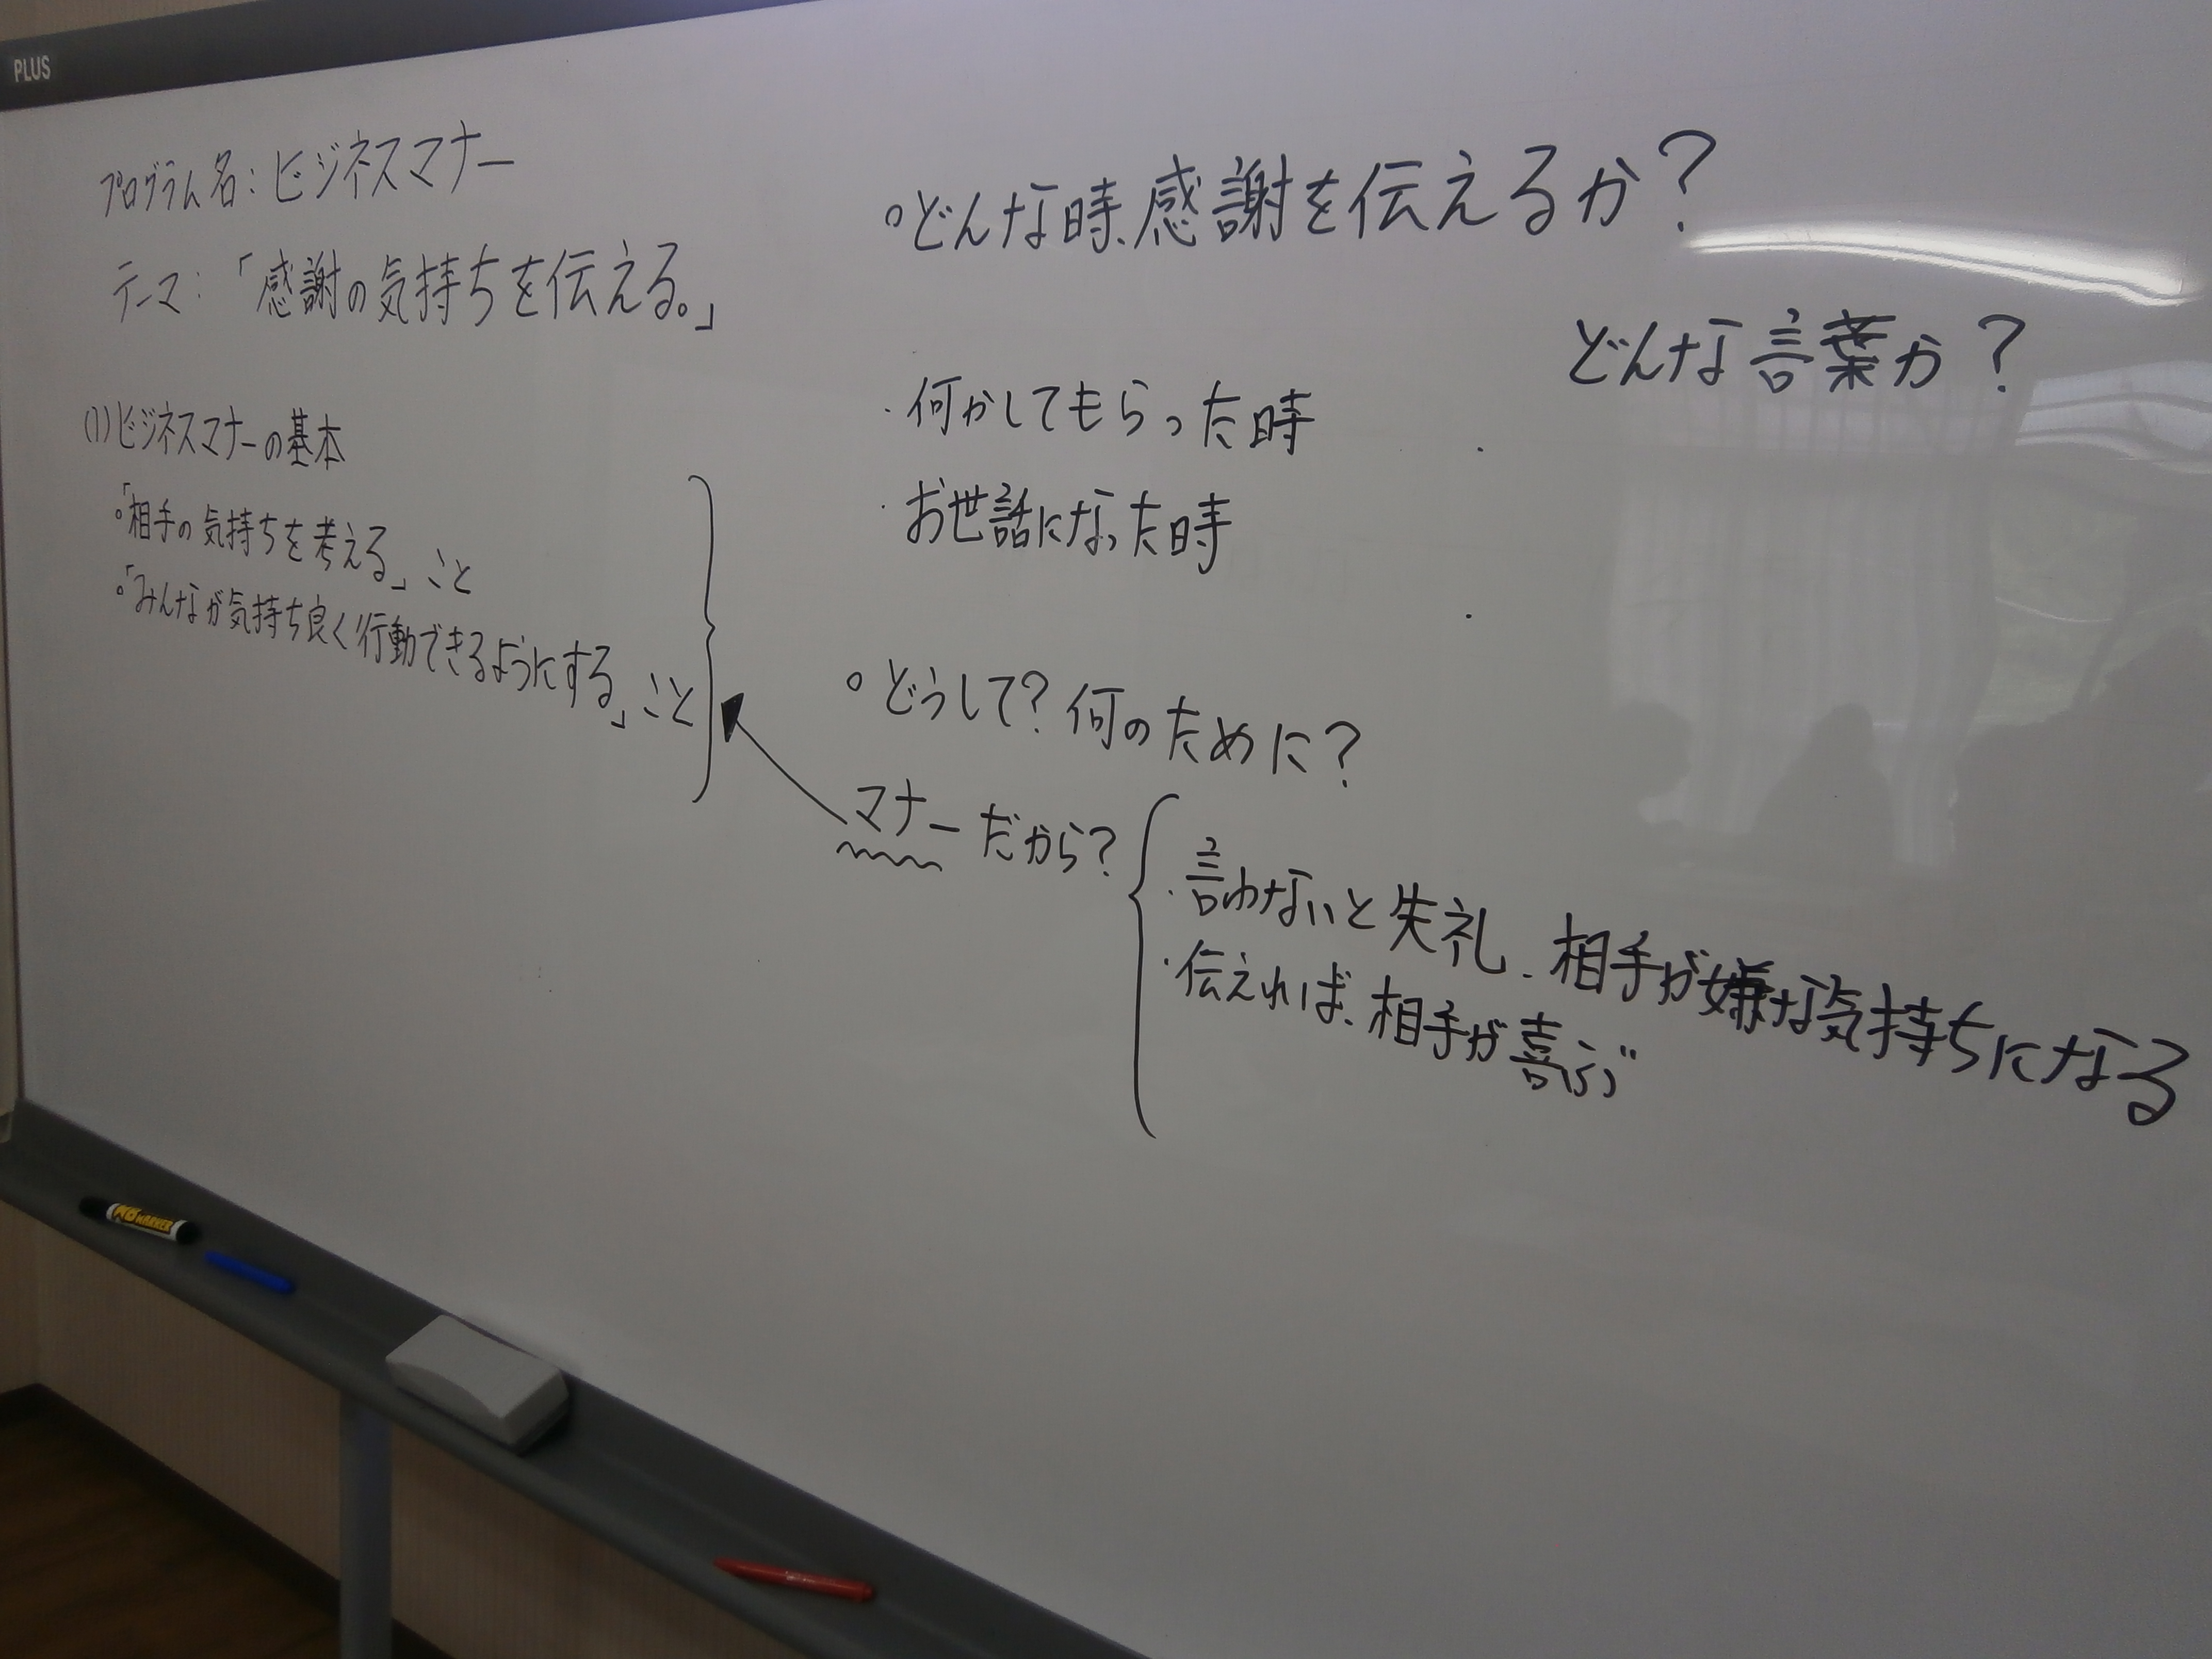 PLUS
プログラム名：ビジネスマナー
テーマ：「感謝の気持ちを伝える。」
(1)ビジネスマナーの基本
。「相手の気持ちを考える」こと
。「みんなが気持ち良く行動できるようにする」こと
。どんな時、感謝を伝えるか？
どんな言葉か？
・何かしてもらった時
・お世話になった時
。どうして？何のために？
マナーだから？
・言わないと失礼、相手が嫌な気持ちになる
・伝えれば、相手が喜ぶ
MARKER